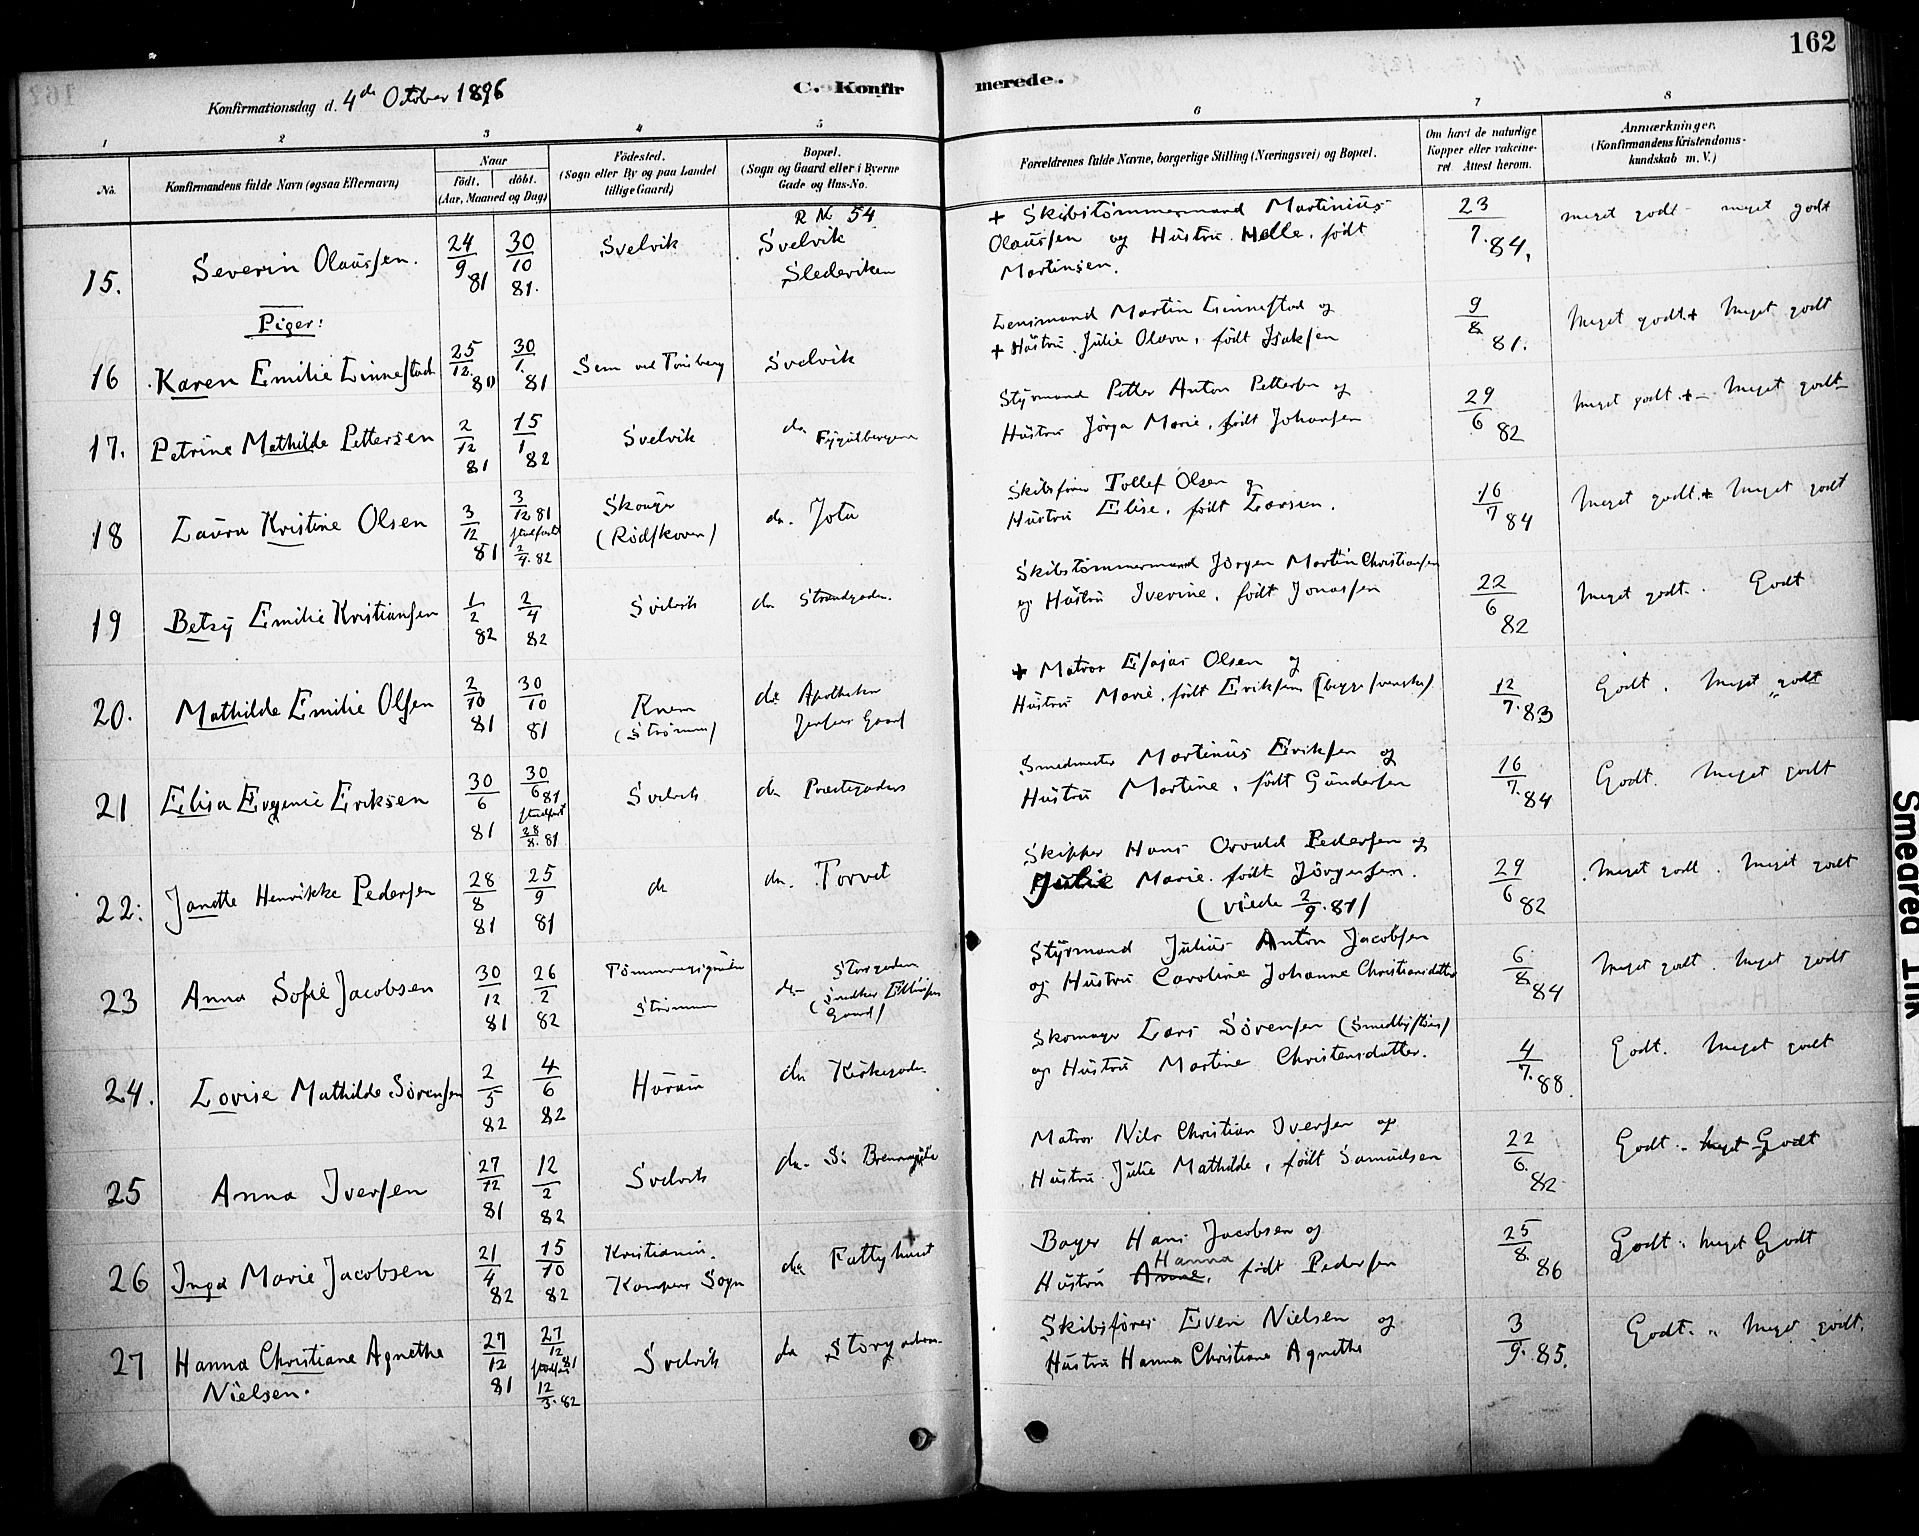 162
Konfirmationsdag d. 4de October 1896
C. Konfirmerede.
1 2 3 4 5 6 7 8
No.
Konfirmandens fulde Navn (ogsaa Efternavn)
Naar
födt. döbt.
(Aar, Maaned og Dag)
Födested.
(Sogn eller By og paa Landet
tillige Gaard)
Bopæl.
(Sogn og Gaard eller i Byerne
Gade og Hus-No.
Forældrenes fulde Navne, borgerlige Stilling (Næringsvei) og Bopæl.
Om havt de naturlige
Kopper eller vakcine-
ret Attest herom.
Anmærkninger.
(Konfirmandens Kristendoms-
kundskab m. V.)
15. Severin Olaussen. 24/9 81 30/10 81. Svelvik
R No 54
Svelvik
Slederviken
+ Skibstömmermand Martinius
Olaussen og Hustru Helle, födt
Martinsen.
23/7.84. meget godt - meget godt
Piger:
16 Karen Emilie Linnestad 25/12. 80 30/1. 81 Sem ved Tönsberg Svelvik
Lensmand Martin Linnestad og
+ Hustru Julie Olava, födt Isaksen
9/8 81. Meget godt + Meget godt
17. Petrine Mathilde Pettersen 2/12 81 15/1 82 Svelvik do
Styrmand Petter Anton Pettersen og
Hustru Jörga Marie, födt Johansen
29/6 82 Meget godt + - Meget godt
18 Laura Kristine Olsen 3/12 81 3/12 81 2/4.82
Skouger
(Rödskoven)
do. Jota
Skibsförer Tollef Olsen og
Hustru Elise, födt Larsen.
16/7 84 Meget godt + Meget godt
19 Betsy Emilie Kristiansen 1/2 82 2/4 82 Svelvik do Strandgaden.
Skibstömmermand Jörgen Martin Christiansen
og Hustru Iverine, födt Jonassen
22/6 82 Meget godt. Godt
20. Mathilde Emilie Olsen 2/10 81 30/10 81
Knem
(Strömm)
do Apotheker
Jensens Gaard
+ Matros Esajas Olsen og
Hustru Marie, födt Eriksen (begge svenske)
12/7.83 Godt, Meget godt
21 Elisa Evgenie Eriksen 30/6 81 30/6 81 28/8.81 Svelvik do Præstegaden
Smedmester Martinus Eriksen og
Hustru Martine, födt Gundersen
16/7.84 Godt. Meget godt
22. Janette Henrikke Pedersen 28/8 81 25/9 81 do do. Torvet
Skipper Hans Osvald Pedersen og
Julie Marie, födt Jörgensen.
(viede 2/9.81)
29/6 82 Meget godt. Meget godt
23 Anna Sofie Jacobsen 30/12 81 26/2 82
Strömm
do- Storgaden
(Snedker Ellingsen
Gaard)
Styrmand Julius Anton Jacobsen
og Hustru Caroline Johanne Christiansdatter
6/8 84 Meget godt. Meget godt
24. Lovise Mathilde Sörensen 2/5 82 4/6 82 Hurum do Kirkegaden
Skomager Lars Sörensen
og Hustru Martine Christensdatter.
4/7.88. Godt. Meget godt
25 Anna Iversen 27/12 81 12/2 82 Svelvik do.
Matros Nils Christian Iversen og
Hustru Julie Mathilde, födt Samuelsen
22/6. 82 Godt. Meget Godt
26 Inga Marie Jacobsen 21/4 82 15/10 82
Kristiania.
Kampens Sogn
do Fattighuset
Bager Hans Jacobsen og
Hanna
Hustru Anne, födt Pedersen
25/8. 86 Godt. Meget Godt
27 Hanna Christiane Agnethe
Nielsen.
27/12 81 27/12 81 12/3.82 Svelvik do Storgaden.
Skibsförer Even Nielsen og
Hustru Hanna Christiane Agnethe
3/9.85. Godt. Meget godt.
Smeared Ink